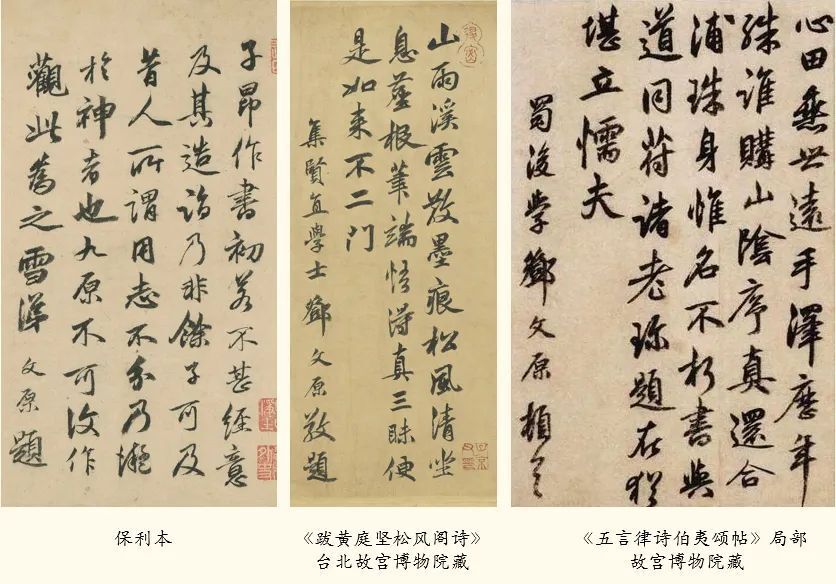 子昂作書初若不甚經意
及其造詣乃非餘子可及
昔人所謂用志不分乃凝
於神者也九原不可復作
觀此為之雪涕 文原題
保利本
山雨溪雲散墨痕松風清坐
息塵根筆端悟得真三昧便
是如來不二門
集賢直學士鄧文原敬題
《跋黄庭坚松风阁诗》
台北故宫博物院藏
心田無世遠手澤歷年
殊誰購山陰序真還合
浦珠身惟名不朽書與
道同符諸老珍題在猶
堪立懦夫
蜀後學鄧文原頓首
《五言律诗伯夷颂帖》局部
故宫博物院藏